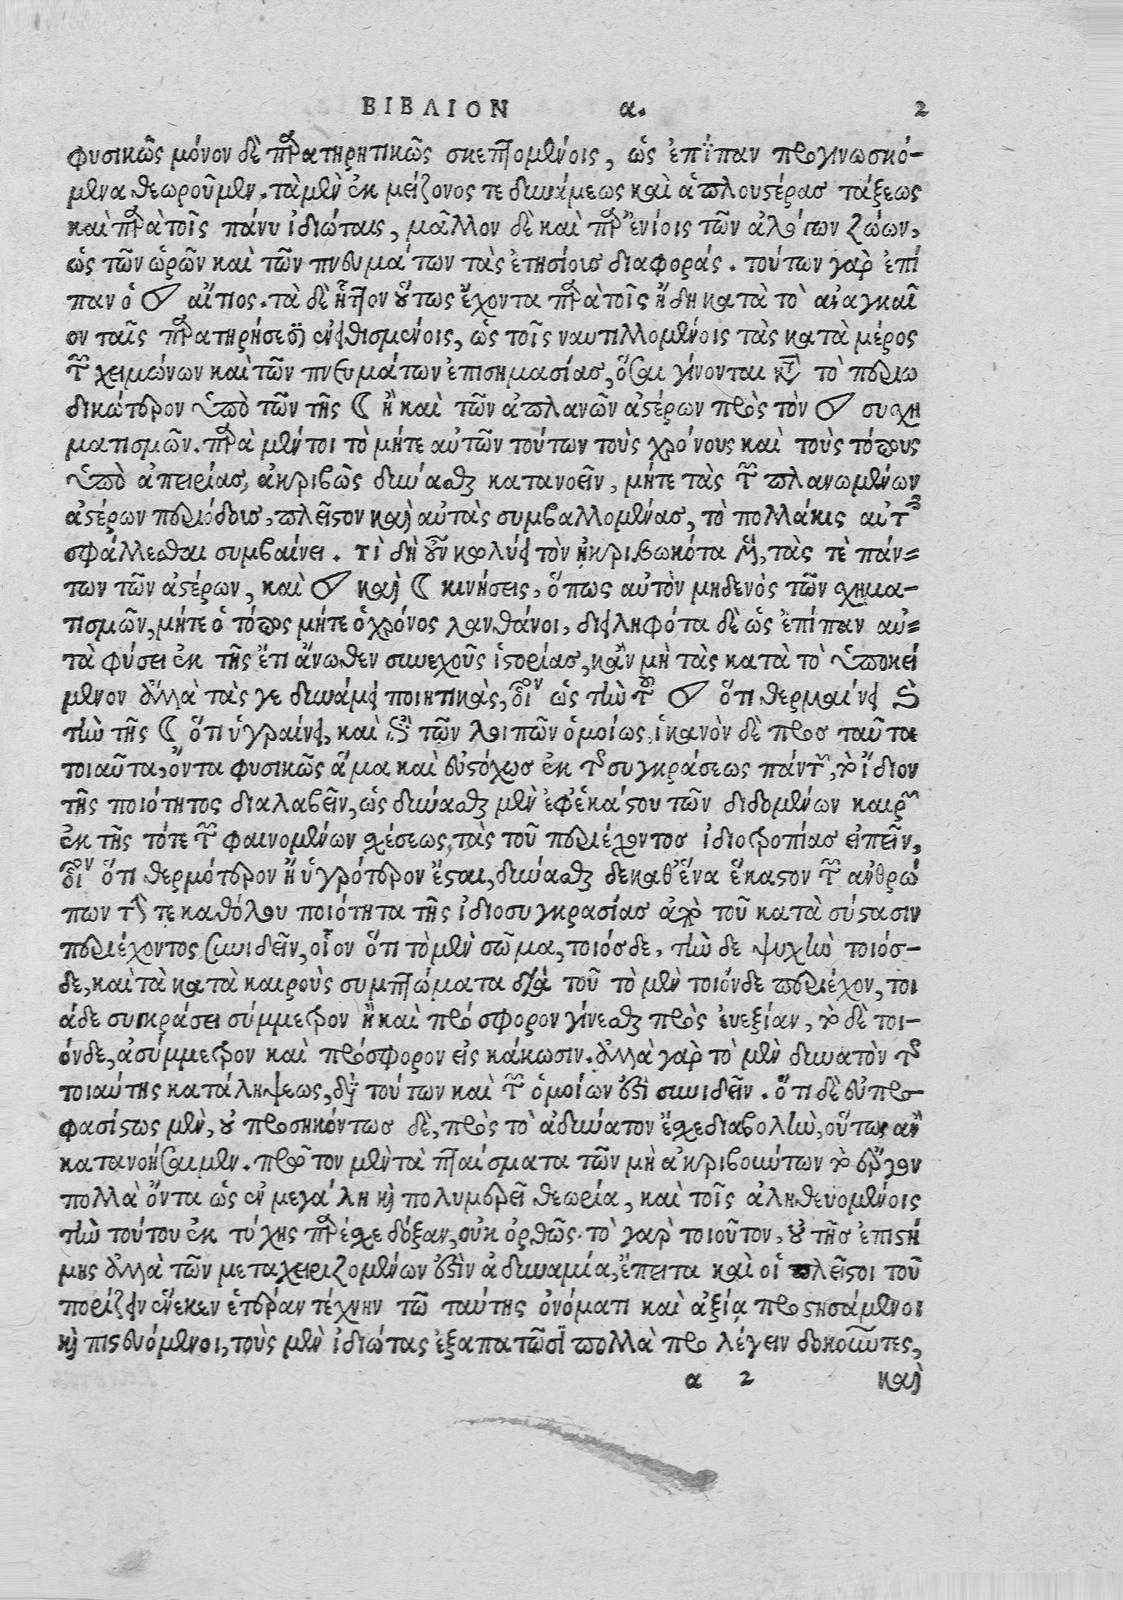 ΒΙΒΛΙΟΝ α. 2
φυσικῶς μόνον δὲ παρατηρητικῶς σκεπτομένοις, ὡς ἐπίπαν προγινωσκό-
μενα θεωροῦμεν. τὰ μὲν ἐκ μείζονος τε δυνάμεως καὶ ἁπλουστέρας τάξεως
καὶ παρὰ τοῖς πάνυ ἰδιώταις, μᾶλλον δὲ καὶ παρ' ἐνίοις τῶν ἀλόγων ζώων,
ὡς τῶν ὡρῶν καὶ τῶν πνευμάτων τὰς ἐτησίους διαφοράς. τούτων γὰρ ἐπί
παν ὁ ☉ αἴτιος. τὰ δὲ ἧττον οὕτως ἔχοντα παρὰ τοῖς ἤδη κατὰ τὸ ἀναγκαῖ
ον ταῖς παρατηρήσεσιν ἐνειθισμένοις, ὡς τοῖς ναυτιλλομένοις τὰς κατὰ μέρος
τῶν χειμώνων καὶ τῶν πνευμάτων ἐπισημασίας, ὅσαι γίνονται κατὰ τὸ περιω
δικώτερον ὑπὸ τῶν τῆς ☾ ἢ καὶ τῶν ἀπλανῶν ἀστέρων πρὸς τὸν ☉ συχη
ματισμῶν. παρὰ μέντοι τὸ μήτε αὐτῶν τούτων τοὺς χρόνους καὶ τοὺς τόπους
ὑπὸ ἀπειρίας, ἀκριβῶς δύνασθαι κατανοεῖν, μήτε τὰς τῶν πλανωμένων
ἀστέρων περιόδους, πλεῖστον καὶ αὐτὰς συμβαλλομένας, τὸ πολλάκις αὐτοῖς
σφάλλεσθαι συμβαίνει. τί δὴ οὖν κωλύει τὸν ἠκριβωκότα μὲν, τὰς τὲ πάν=
των τῶν ἀστέρων, καὶ ☉ καὶ ☾ κινήσεις, ὅπως αὐτὸν μηδενὸς τῶν σχημα-
τισμῶν, μήτε ὁ τόπος μήτε ὁ χρόνος λανθάνοι, διειληφότα δὲ ὡς ἐπίπαν αὐ=
τὰ φύσει ἐκ τῆς ἔτι ἄνωθεν συνεχοῦς ἱστορίας, κἂν μὴ τὰς κατὰ τὸ ὑποκεί
μενον ἀλλὰ τὰς γε δυνάμει ποιητικὰς, οἷον ὡς τὴν τοῦ ☉ ὅτι θερμαίνει καὶ
τὴν τῆς ☾ ὅτι ὑγραίνει, καὶ ἐπὶ τῶν λοιπῶν ὁμοίως, ἱκανὸν δὲ προς ταῦτα
τοιαῦτα, ὄντα φυσικῶς ἅμα καὶ εὐστόχως ἐκ τοῦ συγκράσεως πάντων, τὸ ἴδιον
τῆς ποιότητος διαλαβεῖν, ὡς δύνασθαι μὲν ἐφ' ἑκάστου τῶν διδομένων καιρῶν
ἐκ τῆς τότε τῶν φαινομένων σχέσεως, τὰς τοῦ περιέχοντος ἰδιοτροπίας εἰπεῖν,
οἷον ὅτι θερμότερον ἢ ὑγρότερον ἔσται, δύνασθαι δε καθ' ἕνα ἕκαστον τῶν ἀνθρώ
πων τήν τε καθόλου ποιότητα τῆς ἰδιοσυγκρασίας ἀπὸ τοῦ κατὰ σύστασιν
περιέχοντος συνιδεῖν, οἷον ὅτι τὸ μὲν σῶμα, τοιόσδε, τὴν δε ψυχὴν τοιόσ-
δε, καὶ τὰ κατὰ καιροὺς συμπτώματα διὰ τοῦ τὸ μὲν τοιόνδε περιέχον, τοι
άδε συγκράσει σύμμετρον ἢ καὶ πρόσφορον γίνεσθαι πρὸς ἐυεξίαν, τὸ δὲ τοι-
όνδε, ἀσύμμετρον καὶ πρόσφορον εἰς κάκωσιν. ἀλλὰ γὰρ τὸ μὲν δυνατὸν τοῦ
τοιαύτης κατάληψεως, διὰ τούτων καὶ τῶν ὁμοίων ἐστὶ συνιδεῖν. ὅτι δὲ εὐπρο-
φασίστως μὲν, οὐ προσηκόντως δὲ, πρὸς τὸ ἀδύνατον ἔσχε διαβολὴν, οὕτως ἂν
κατανοήσαιμεν. πρῶτον μὲν τὰ πταίσματα τῶν μὴ ἀκριβούντων τὸ ἔργον
πολλὰ ὄντα ὡς ἐν μεγάλη καὶ πολυμερεῖ θεωρία, καὶ τοῖς ἀληθευομένοις
τὴν τούτου ἐκ τύχης παρέσχε δόξαν, οὐκ ὀρθῶς. τὸ γὰρ τοιοῦτον, οὐ τῆς ἐπιστή
μης ἀλλὰ τῶν μεταχειριζομένων ἐστὶν ἀδυναμία, ἔπειτα καὶ οἱ πλεῖστοι τοῦ
πορίζειν ἕνεκεν ἑτέραν τέχνην τῶ ταύτης ὀνόματι καὶ ἀξία προστησάμενοι
καὶ πιστευόμενοι, τοὺς μὲν ἰδιώτας ἐξαπατῶσι πολλὰ προ λέγειν δοκοῦντες,
α 2 καὶ